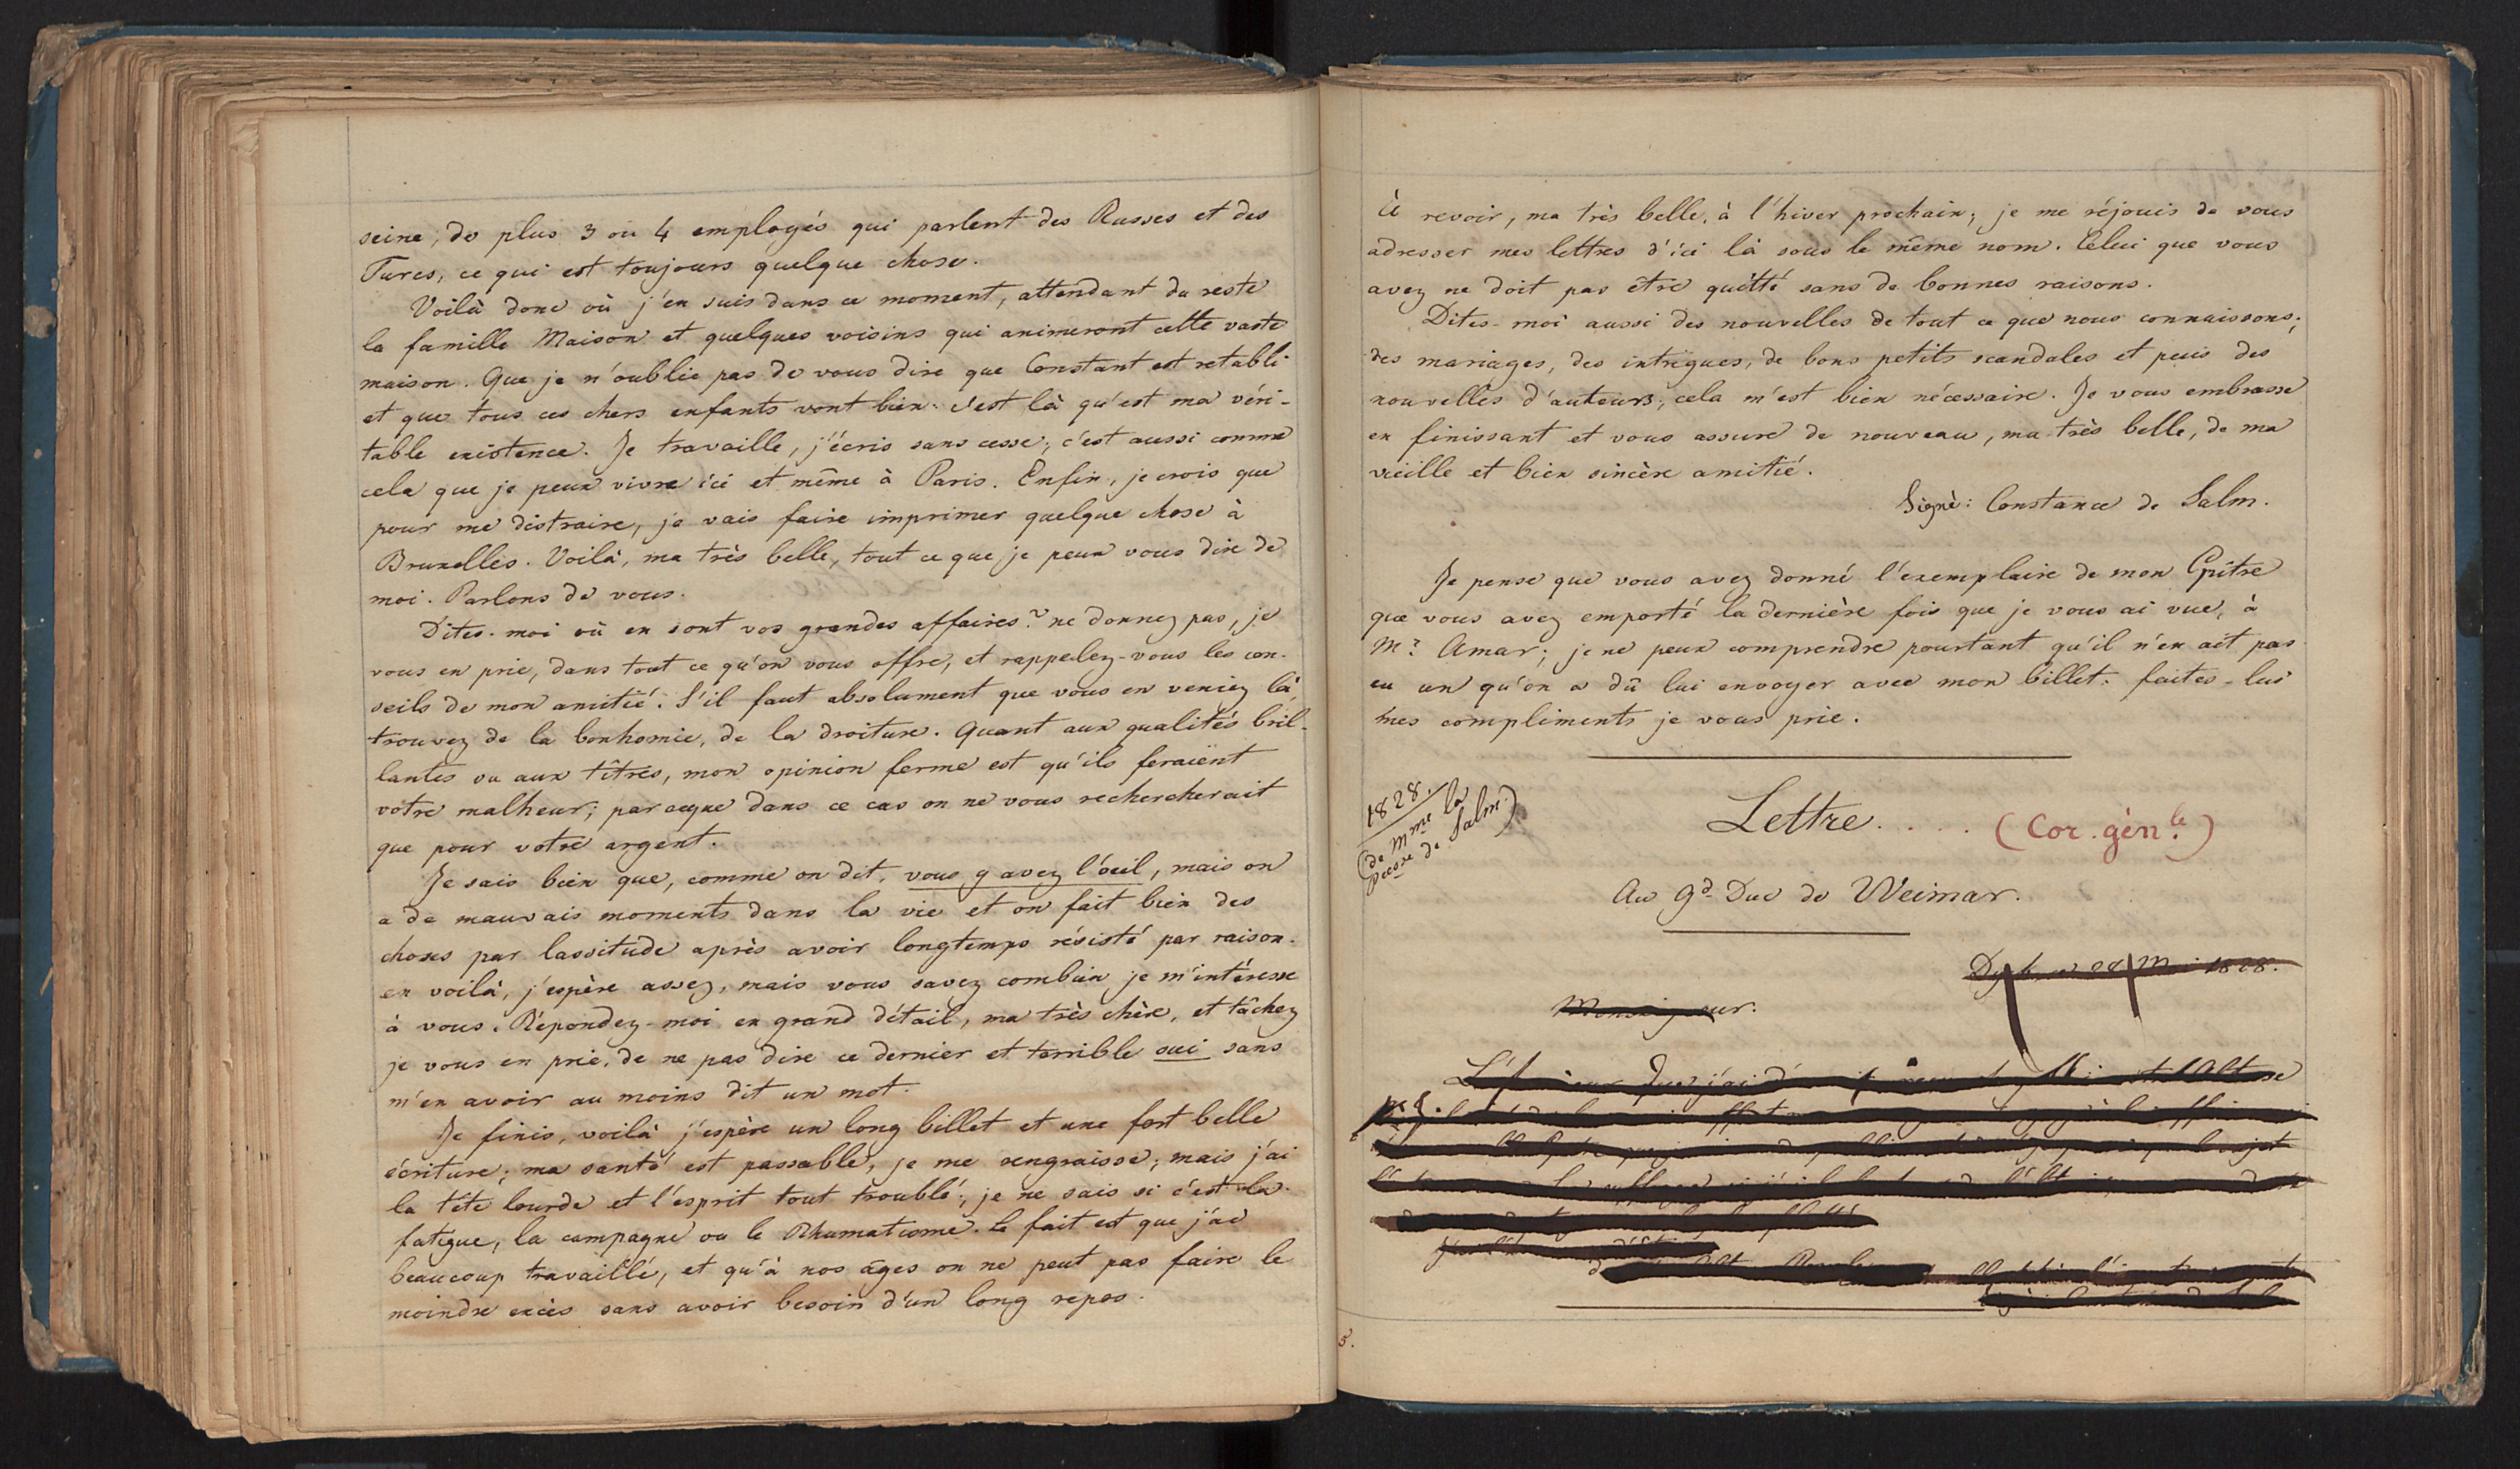 seine, de plus 3 ou 4 employés qui parlent des Russes et des
Turcs, ce qui est toujours quelque chose.
Voilà donc où j'en suis dans ce moment, attendant du reste
la famille Maison et quelques voisins qui animeront cette vaste
maison. Que je n'oublie pas de vous dire que Constant est retabli
et que tous ces chers enfants vont bien. c'est là qu'est ma véri-
table existence. Je travaille, j'écris sans cesse; c'est aussi comme
cela que je peux vivre ici et même à Paris. Enfin, je crois que
pour me distraire, je vais faire imprimer quelque chose à
Bruxelles. Voilà, ma très belle, tout ce que je peux vous dire de
moi. Parlons de vous.
Dites-moi où en sont vos grandes affaires? ne donnez pas, je
vous en prie, dans tout ce qu'on vous offre, et rappelez-vous les con-
seils de mon amitié. S'il faut absolument que vous en veniez là,
trouvez de la bonhomie, de la droiture. Quant aux qualités bril-
lantes ou aux tîtres, mon opinion ferme est qu'ils feraient
votre malheur; parceque dans ce cas on ne vous rechercherait
que pour votre argent.
Je sais bien que, comme on dit, vous y avez l'oeil, mais on
a de mauvais moments dans la vie et on fait bien des
choses par lassitude après avoir longtemps résisté par raison.
en voilà, j'espère assez, mais vous savez combien je m'intéresse
à vous. Répondez-moi en grand détail, ma très chère, et tâchez
je vous en prie, de ne pas dire ce dernier et terrible oui sans
m'en avoir au moins dit un mot.
Je finis, voilà j'espère un long billet et une fort belle
écriture; ma santé est passable, je me rengraisse; mais j'ai
la tête lourde et l'esprit tout troublé; je ne sais si c'est la
fatigue, la campagne ou le Rhumatisme. le fait est que j'ai
beaucoup travaillé, et qu'à nos âges on ne peut pas faire le
moindre excès sans avoir besoin d'un long repos.
À revoir, ma très belle, à l'hiver prochain; je me réjouis de vous
adresser mes lettres d'ici là sous le même nom. Celui que vous
avez ne doit pas être quitté sans de bonnes raisons.
Dites-moi aussi des nouvelles de tout ce que nous connaissons;
des mariages, des intrigues, de bons petits scandales et puis des
nouvelles d'auteurs; cela m'est bien nécessaire. Je vous embrasse
en finissant et vous assure de nouveau, ma très belle, de ma
vieille et bien sincère amitié.
Signé: Constance de Salm.
Je pense que vous avez donné l'exemplaire de mon Epître
que vous avez emporté la dernière fois que je vous ai vue, à
Mr. Amar; je ne peux comprendre pourtant qu'il n'en ait pas
eu un qu'on a dû lui envoyer avec mon billet. faites-lui
mes compliments je vous prie.
1828.
(de Mme la
Pcesse de Salm)
Lettre.... (Cor. gén.le)
Au gd. Duc de Weimar.
Mai 1828.
Monseigneur.
Altesse
5.